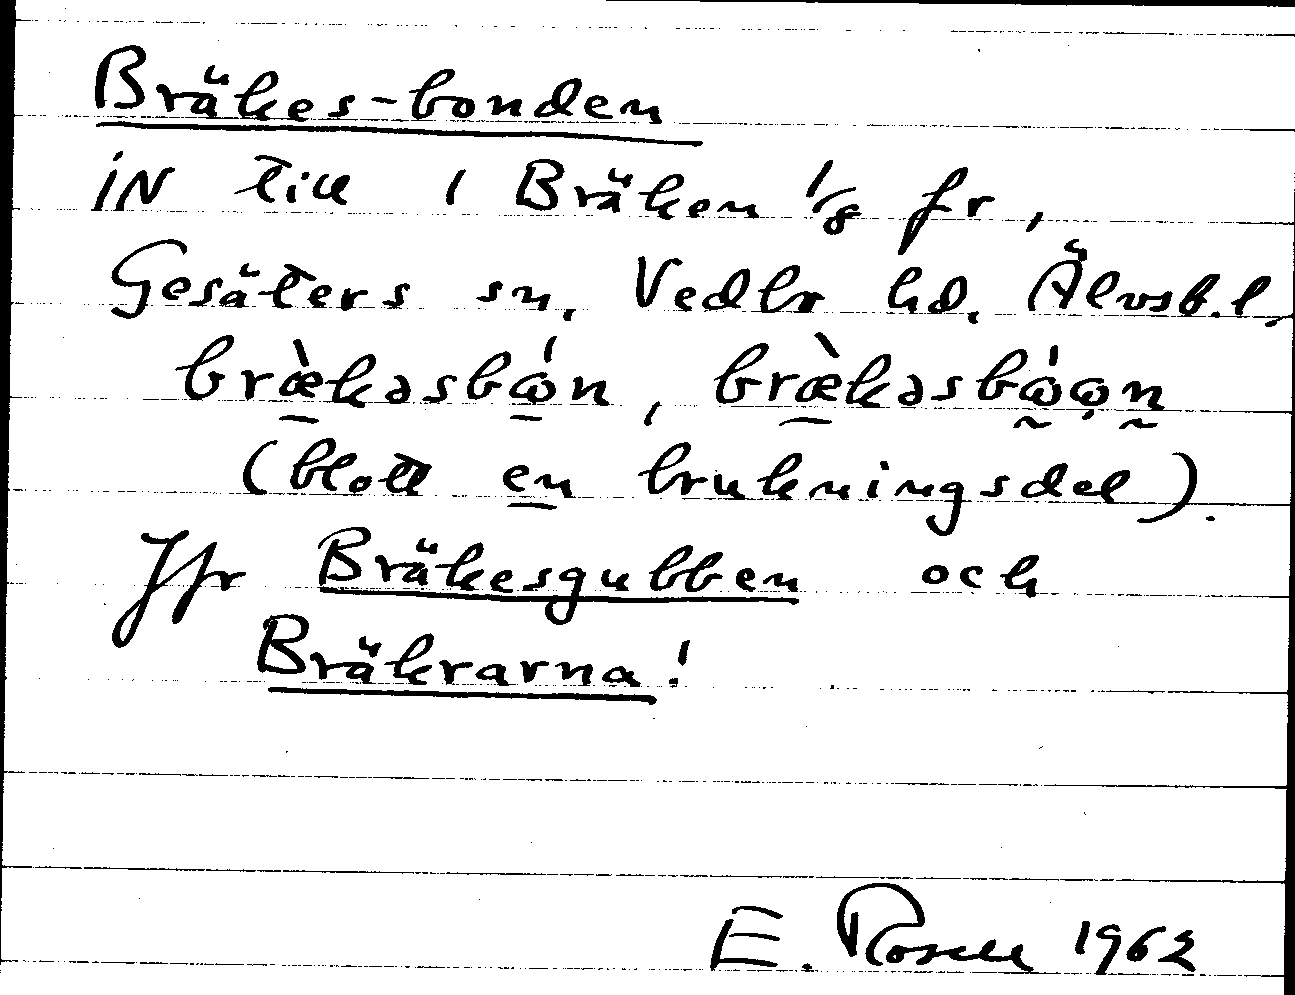 Bräkes-bonden
iN till 1 Bräken 1/8 fr,
Gesäters sn, Vedbo hd, Älvsb.l.
bræ̀kəsbẃn, bræ̀kəsbẃwn
(blott en brukningsdel).
Jfr Bräkesgubben och
Bräkrarna!
E. Rosell 1962